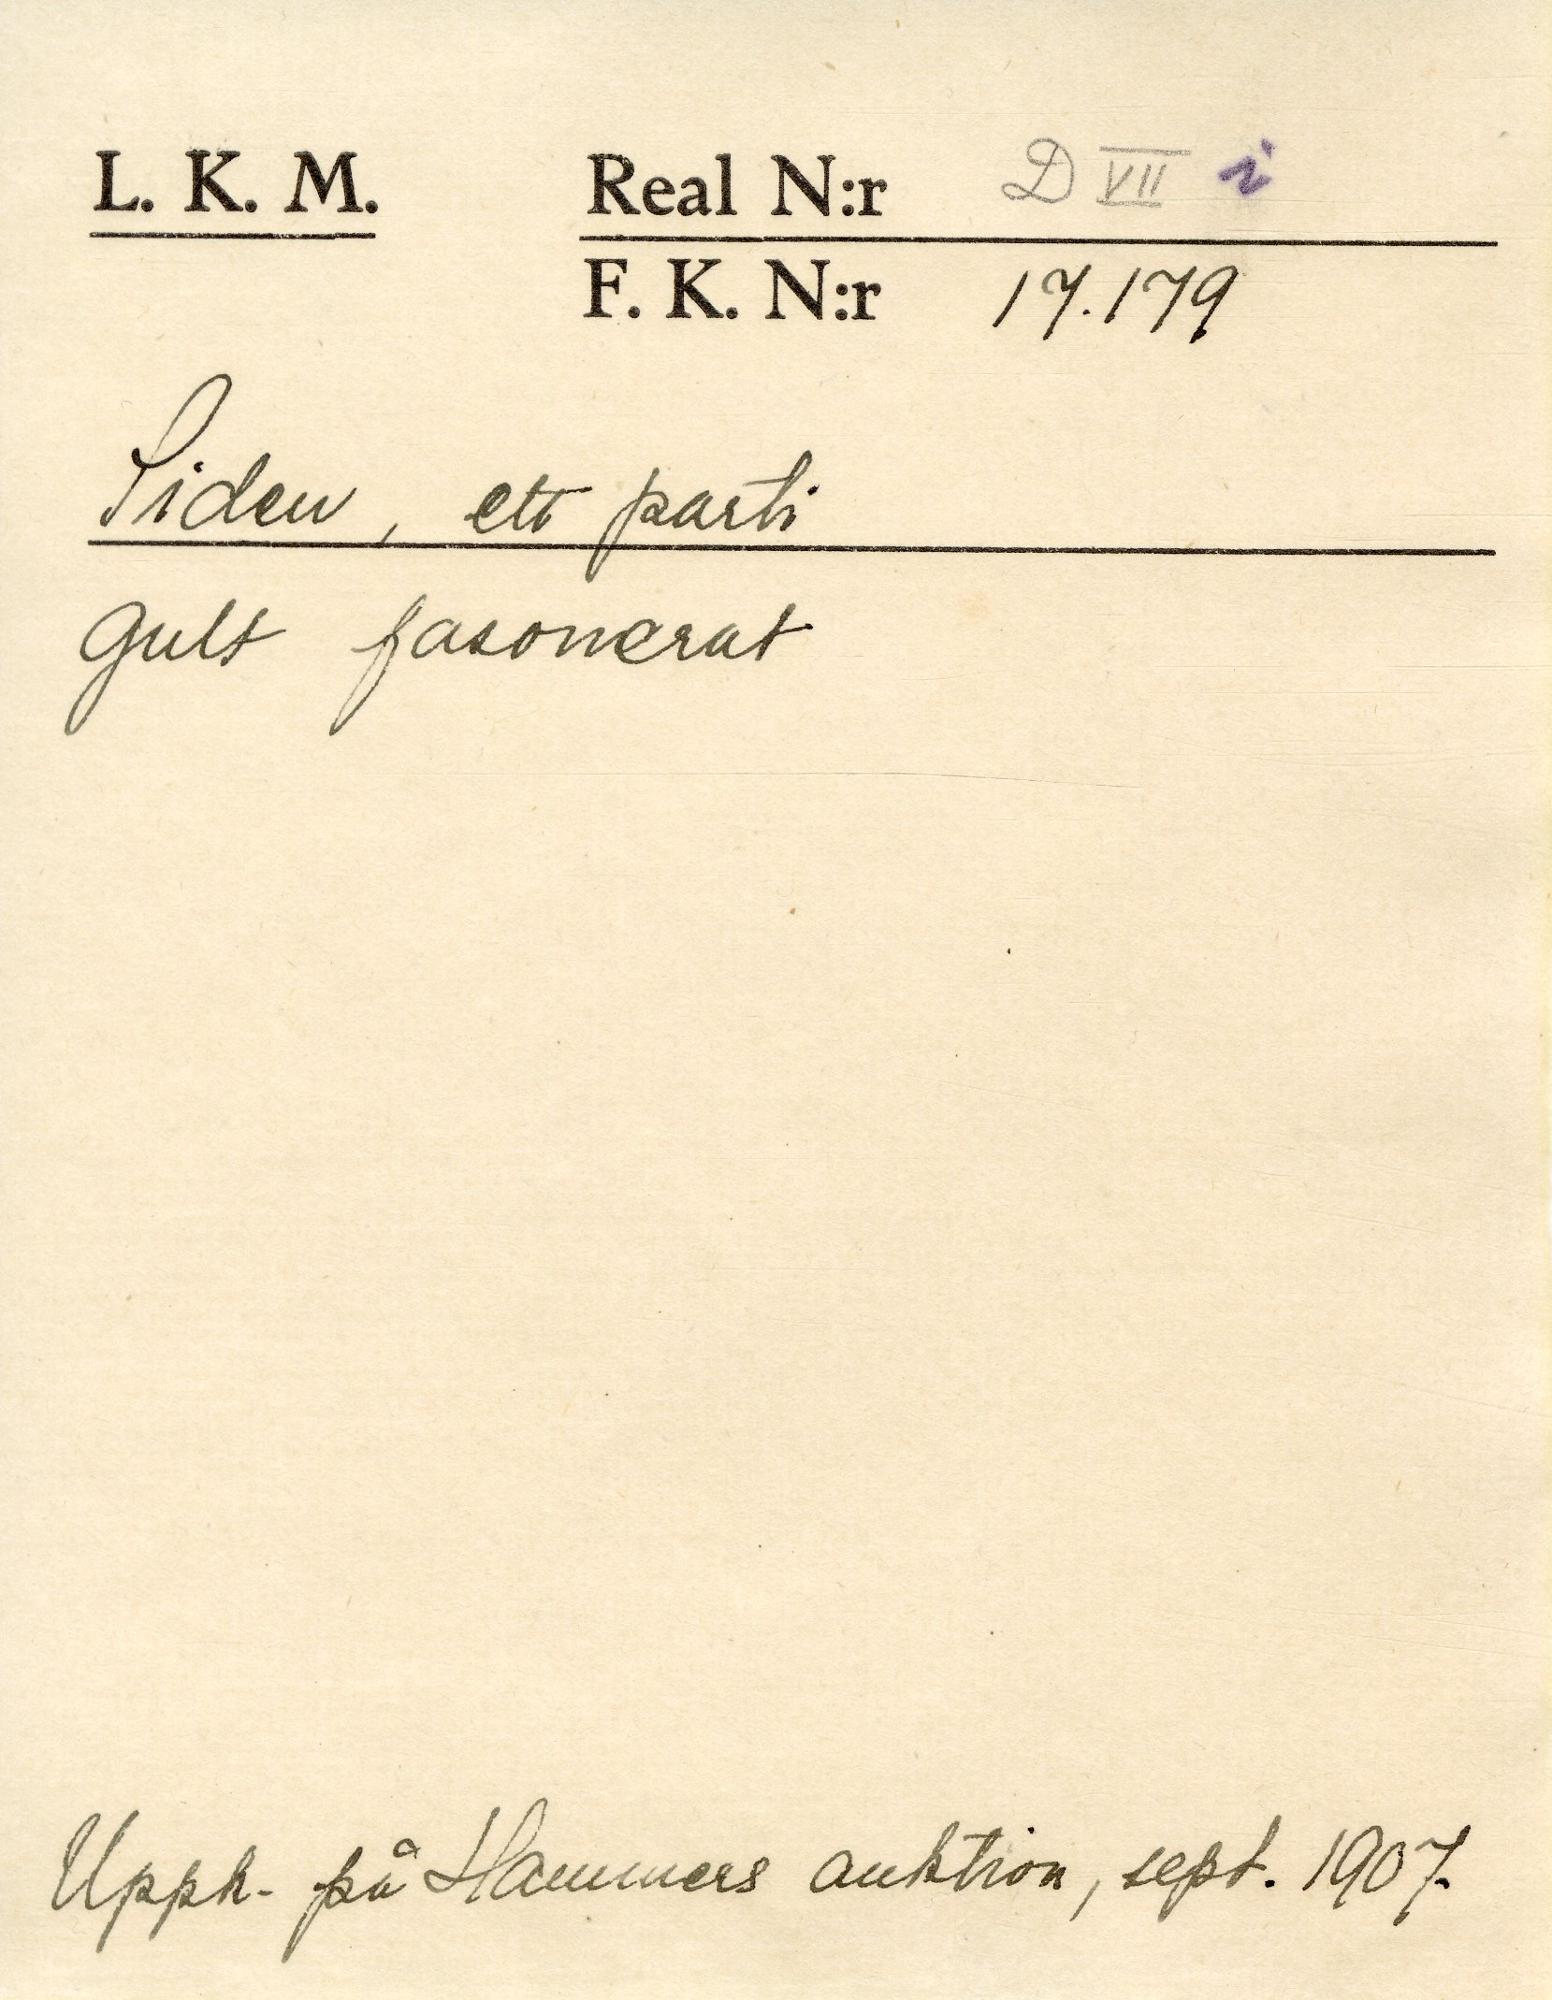 L. K. M.
Real N:r D VII i
F. K. N:r 17.179
Siden, ett parti
gult fasonerat
Uppk. på Hammers auktion, sept. 1907.